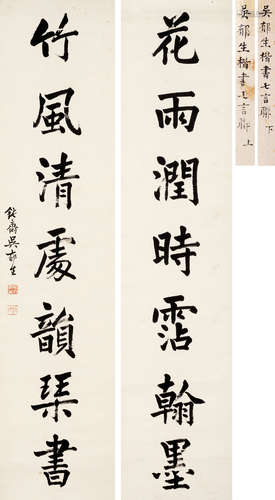 花雨潤時霑翰墨
竹風清處韻琴書
鈍齋吳郁生
吳郁生楷書七言聯 上
吳郁生楷書七言聯 下